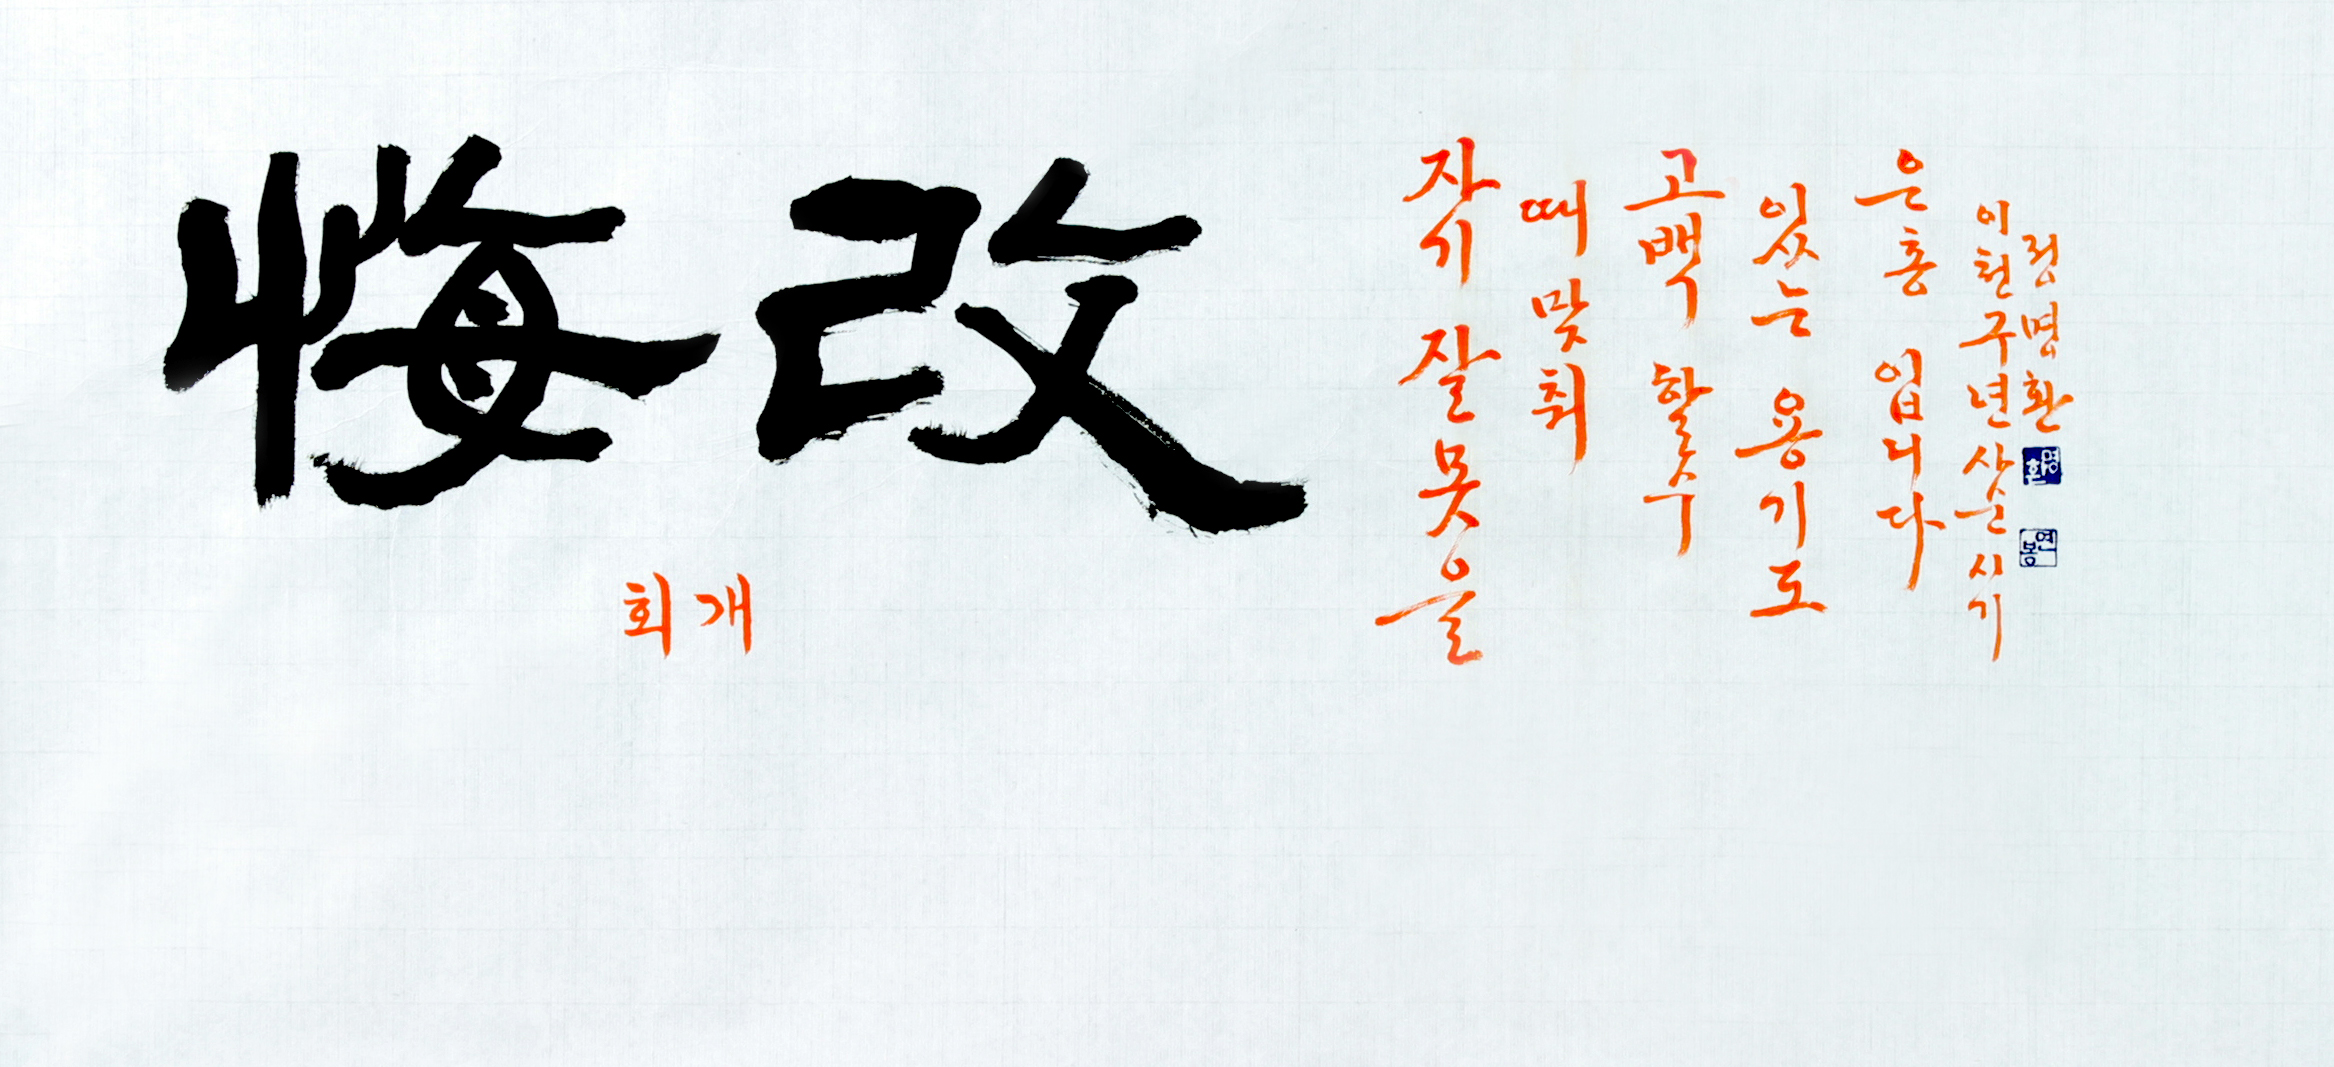 悔改
회개
자기 잘못을
때 맞춰
고백 할수
있는 용기도
은총 입니다
이천구년 삼순 시기
정명환
명환
연몽